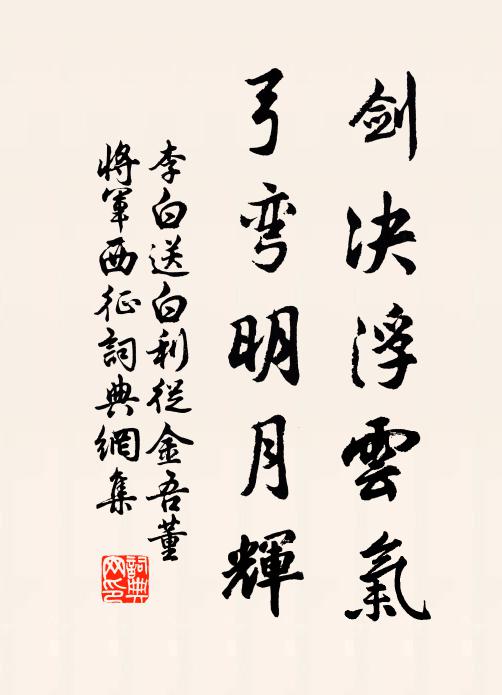 剑决浮雲氣
弓弯明月輝
李白送白利從金吾董
將軍西征詞典網集
詞典網印